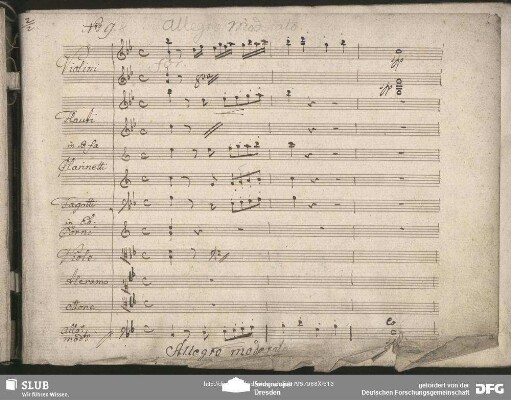 No 9.
Allegro Moderato
Violini
Flauti
in B fa
Clarinetti
Fagotti
in Eb.
Corni
Viole
Alcramo
Allo:
modto
Allegro moderato
SLUB
Wir führen Wissen.
Dresden
gefördert von der
Deutschen Forschungsgemeinschaft
DFG